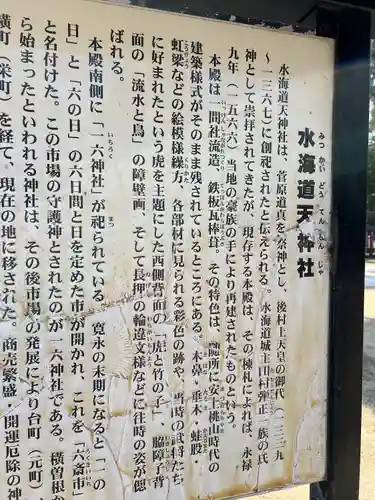 水海道天神社
みつかいどうてんじんじゃ
水海道天神社は、菅原道真を祭神とし、後村上天皇の御代(一三三九
〜一三六七)に創祀されたと伝えられる。水海道城主田村弾正一族の氏
神として崇拝されてきたが、現存する本殿は、その棟札によれば、永禄
九年(一五六六)当地の豪族の手により再建されたものという。
本殿は一間社流造、鉄板瓦棒葺。その特色は、随所に安土桃山時代の
建築様式がそのまま残されているところにある。木鼻・垂木・蛙股・
虹梁などの絵模様繰方、各部材に見られる彩色の跡や、当時の武将たち
に好まれたという虎を主題にした西側背面の「虎と竹の子」、脇障子背
面の「流水と鳥」の障壁画、そして長押の輪違文様などに往時の姿が偲
ばれる。
本殿南側に「一六神社」が祀られている。寛永の末期になると「一の
日」と「六の日」の六日間と日を定めた市が開かれ、これを「六斎市」
と名付けた。この市場の守護神とされたのが一六神社である。横曽根か
ら始まったといわれる神社は、その後市場の発展により台町(元町)、
横町(栄町)を経て、現在の地に移された。商売繁盛・開運厄除の神